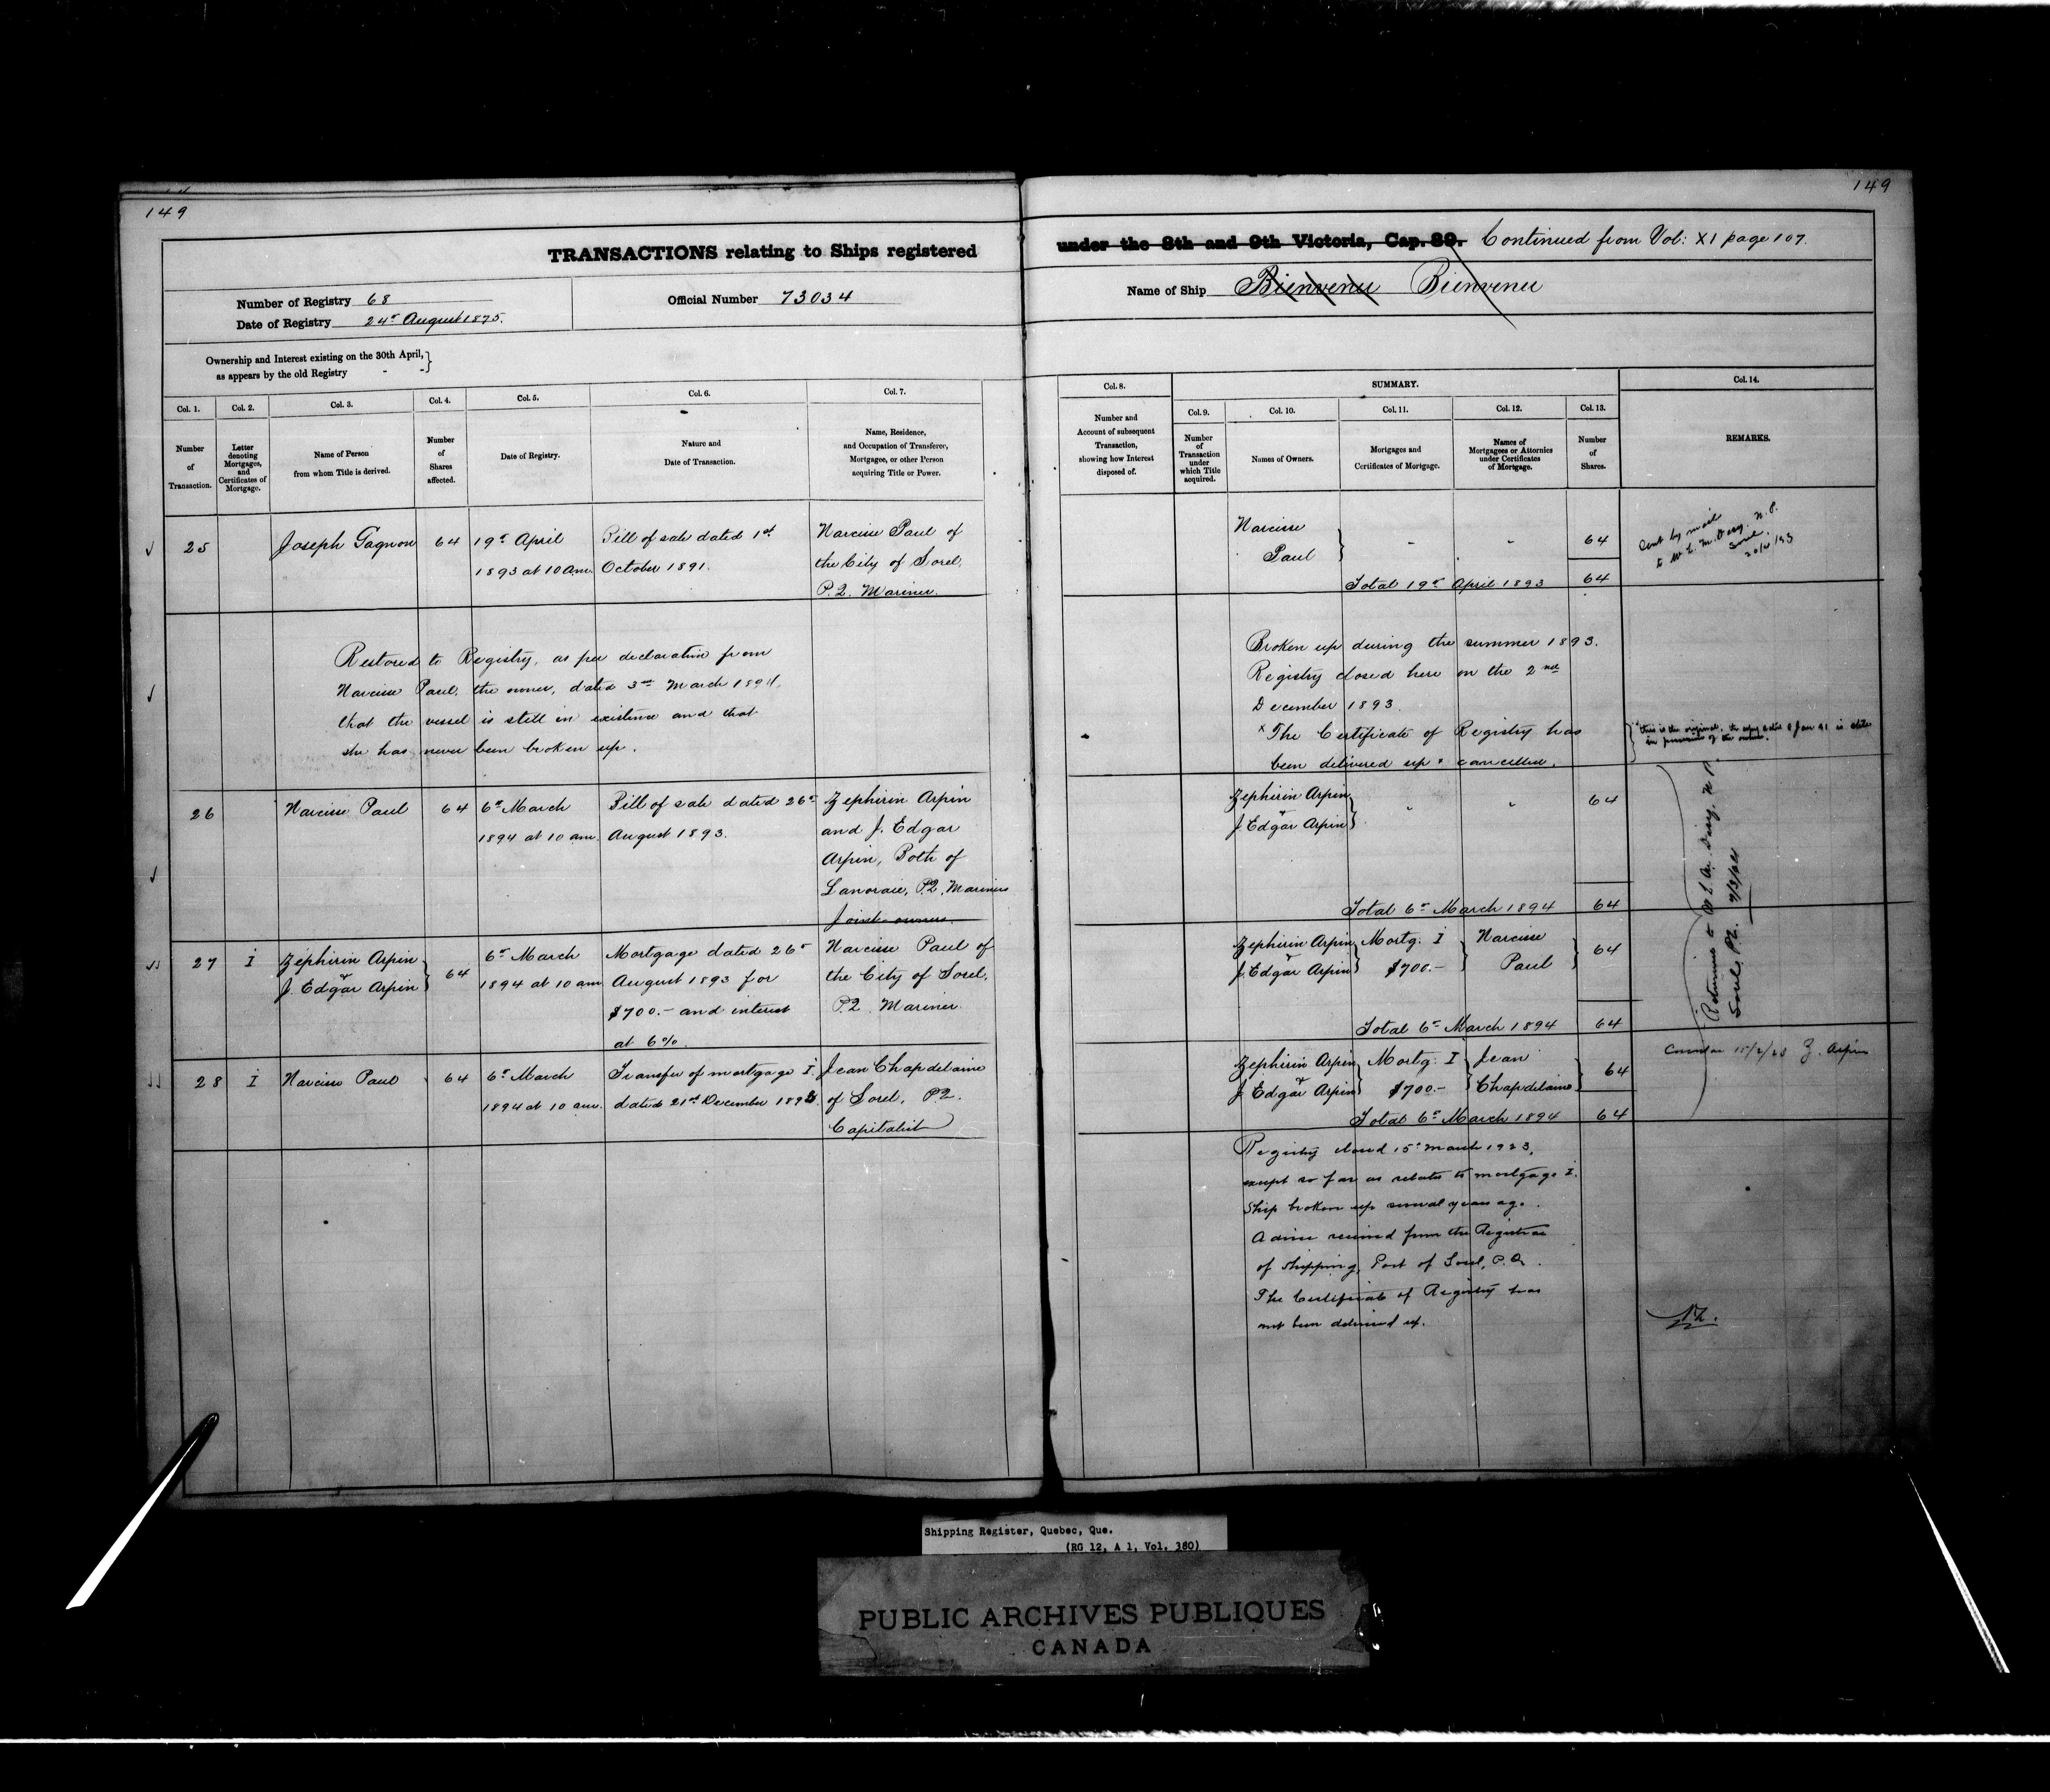 149
149
TRANSACTIONS relating to Ships registered
under the 8th and 9th Victoria, Cap. 89. Continued from Vol: XI page 107.
Number of Registry 68
Date of Registry 24th August 1875.
Official Number 73034
Name of Ship Bienvenu Bienvenu
Ownership and Interest existing on the 30th April,
as appears by the old Registry - -
Col. 1.
Number
of
Transaction.
Col. 2.
Letter
denoting
Mortgages,
and
Certificates of
Mortgage.
Col. 3.
Name of Person
from whom Title is derived.
Col. 4.
Number
of
Shares
affected.
Col. 5.
Date of Registry.
Col. 6.
Nature and
Date of Transaction.
Col. 7.
Name, Residence,
and Occupation of Transferee,
Mortgagee, or other Person
acquiring Title or Power.
Col. 8.
Number and
Account of subsequent
Transaction,
showing how Interest
disposed of.
SUMMARY.
Col. 9.
Number
of
Transaction
under
which Title
acquired.
Col. 10.
Names of Owners.
Col. 11.
Mortgages and
Certificates of Mortgage.
Col. 12.
Names of
Mortgagees or Attornies
under Certificates
of Mortgage.
Col. 13.
Number
of
Shares.
Col. 14.
REMARKS.
25
Joseph Gagnon
64
19th April
1893 at 10 am.
Bill of sale dated 1st
October 1891.
Narcisse Paul of
the City of Sorel,
P.Q. Mariner.
Narcisse
Paul
64
Total 19th April 1893 64
Sent by mail
Sorel
Restored to Registry, as per declaration from
Narcisse Paul, the owner, dated 3rd March 1894,
that the vessel is still in existence and that
she has never been broken up.
Broken up during the summer 1893.
Registry closed here on the 2nd
December 1893.
x The Certificate of Registry has
been delivered up & cancelled.
this is the original, the copy dated 8 Jan 91 is
in possession of the owner.
26
Narcisse Paul
64
6th March
1894 at 10 am.
Bill of sale dated 26th
August 1893.
Zephirin Arpin
and J. Edgar
Arpin, Both of
Lanoraie, P.Q. Mariners
Joint owners.
Zephirin Arpin
&
J. Edgar Arpin
64
Total 6th March 1894 64
27
I
Zephirin Arpin
&
J. Edgar Arpin
64
6th March
1894 at 10 am
Mortgage dated 26th
August 1893 for
$700.- and interest
at 6%.
Narcisse Paul of
the City of Sorel,
P.Q. Mariner.
Zephirin Arpin
&
J. Edgar Arpin
Mortg. I
$700.-
Narcisse
Paul
64
Total 6th March 1894 64
Sorel P.Q.
28
I
Narcisse Paul
64
6th March
1894 at 10 am.
Transfer of mortgage I.
dated 21st December 1893.
Jean Chapdelaine
of Sorel, P.Q.
Capitalist
Zephirin Arpin
&
J. Edgar Arpin
Mortg. I
$700.-
Jean
Chapdelaine
64
Total 6th March 1894 64
Z. Arpin
Registry closed 15th March 1923,
except so far as relates to mortgage I.
Ship broken up several years ago.
Advice received from the Registrar
of Shipping, Port of Sorel, P.Q.
The Certificate of Registry has
not been delivered up.
Shipping Register, Quebec, Que.
(RG 12, A 1, Vol. 380)
PUBLIC ARCHIVES PUBLIQUES
CANADA